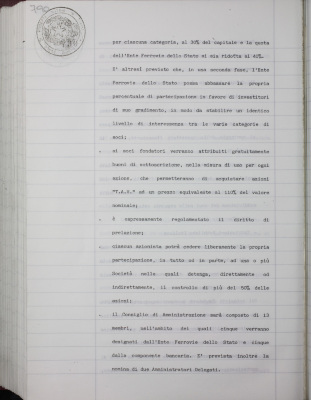 per ciascuna categoria, al 30% del capitale e la quota
dell'Ente Ferrovie dello Stato si sia ridotta al 40%.
E' altresì previsto che, in una seconda fase, l'Ente
Ferrovie dello Stato possa abbassare la propria
percentuale di partecipazione in favore di investitori
di suo gradimento, in modo da stabilire un identico
livello di interessenza tra le varie categorie di
soci;
- ai soci fondatori verranno attribuiti gratuitamente
buoni di sottoscrizione, nella misura di uno per ogni
azione, che permetteranno di acquistare azioni
"T.A.V." ad un prezzo equivalente al 110% del valore
nominale;
- È espressamente regolamentato il diritto di
prelazione;
- ciascun azionista potrà cedere liberamente la propria
partecipazione, in tutto od in parte, ad una o più
Società nelle quali detenga, direttamente od
indirettamente, il controllo di più del 50% delle
azioni;
- il Consiglio di Amministrazione sarà composto di 13
membri, nell'ambito dei quali cinque verranno
designati dall'Ente Ferrovie dello Stato e cinque
dalla componente bancaria. E' prevista inoltre la
nomina di due Amministratori Delegati.